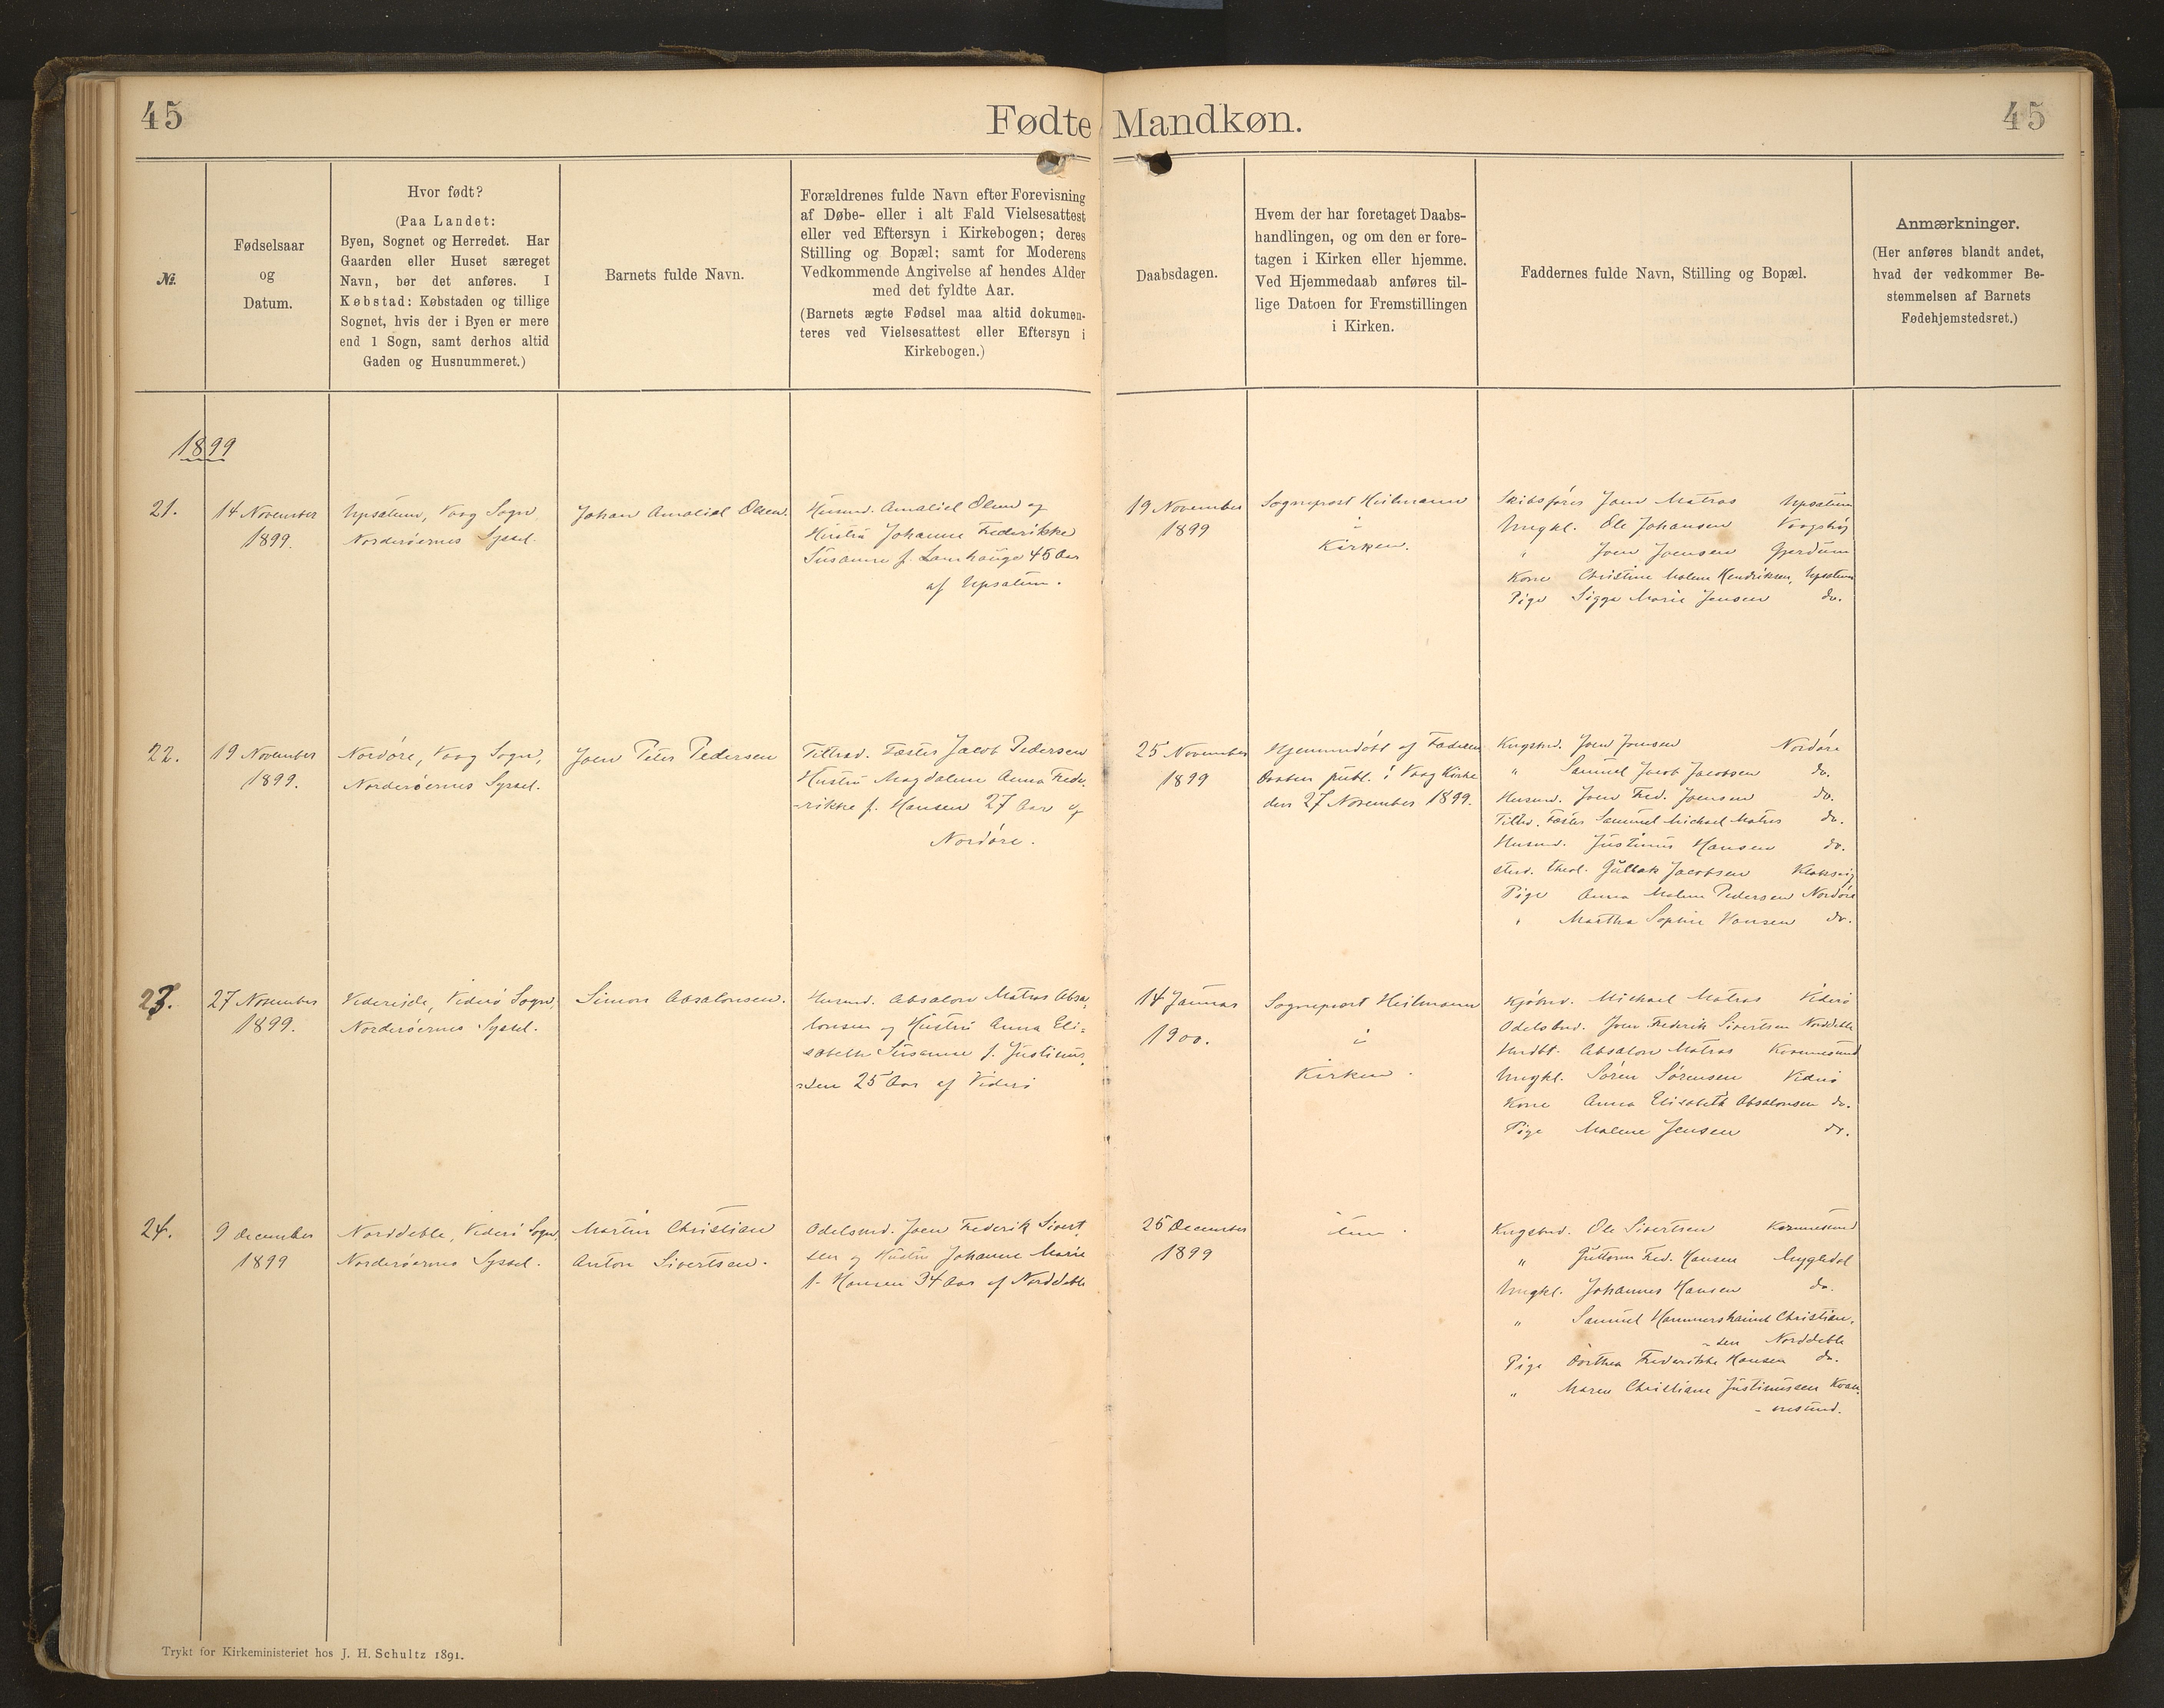 45
Fødte Mandkøn.
45
№.
Fødselsaar
og
Datum.
Hvor født?
(Paa Landet:
Byen, Sognet og Herredet. Har
Gaarden eller Huset særeget
Navn, bør det anføres. I
Købstad: Købstaden og tillige
Sognet, hvis der i Byen er mere
end 1 Sogn, samt derhos altid
Gaden og Husnummeret.)
Barnets fulde Navn.
Forældrenes fulde Navn efter Forevisning
af Døbe- eller i alt Fald Vielsesattest
eller ved Eftersyn i Kirkebogen; deres
Stilling og Bopæl; samt for Moderens
Vedkommende Angivelse af hendes Alder
med det fyldte Aar.
(Barnets ægte Fødsel maa altid dokumen-
teres ved Vielsesattest eller Eftersyn i
Kirkebogen.)
Daabsdagen.
Hvem der har foretaget Daabs-
handlingen, og om den er fore-
tagen i Kirken eller hjemme.
Ved Hjemmedaab anføres til-
lige Datoen for Fremstillingen
i Kirken.
Faddernes fulde Navn, Stilling og Bopæl.
Anmærkninger.
(Her anføres blandt andet,
hvad der vedkommer Be-
stemmelsen af Barnets
Fødehjemstedsret.)
1899
21.
14 November
1899.
Upsalum, Vaag Sogn
Norderöernes Syssel.
Johan Amaliel Olsen.
Husmd. Amaliel Olsen og
Hustru Johanne Frederikke
Susanne f. Lamhauge 45 Aar
af Upsalum.
19 November
1899
Sogneprest Heilmann
i
Kirken.
Skibsfører Joen Matras Upsalum
Ungkl. Ole Johansen Vaagshöj
" Joen Joensen Gjerdum
Kone Christine Malene Hendriksen, Upsalum
Pige Sigga Marie Jensen do.
22.
19 November
1899.
Nordöre, Vaag Sogn,
Norderöernes Syssel.
Joen Peter Pedersen
Tiltræd. Fæster Jacob Pedersen
Hustru Magdalene Anna Frede-
-rikke f. Hansen 27 Aar af
Nordöre.
25 November
1899
Hjemmedöbt af Faderen
Daaben publ. i Vaag Kirke
den 27 November 1899.
Kngsbd. Joen Joensen Nordöre
" Samuel Jacob Jacobsen do.
Husmd. Joen Fred. Joensen do.
Tiltr. Fæster Samuel Michael Matras do.
Husmd. Justinus Hansen do.
stud. theol. Gullak Jacobsen Klaksvig
Pige Anna Malene Pedersen Nordöre
" Martha Sophie Hansen do.
23.
27 November
1899.
Viderejde, Viderö Sogn,
Norderöernes Syssel.
Simon Absalonsen.
Husmd. Absalon Matras Absa-
lonsen og Hustru Anna Eli-
sabeth Susanne f. Justinus-
sen 25 Aar af Viderö
14 Januar
1900.
Sogneprest Heilmann
i
Kirken.
Kjöbmd. Michael Matras Viderö
Odelsbd. Joen Frederik Sivertsen Norddeble
Absalon Matras Kvannesund
Ungkl. Sören Sörensen Viderö
Kone Anna Elisabeth Absalonsen do.
Pige Malene Jensen do.
24.
9 December
1899
Norddeble, Viderö Sogn,
Norderöernes Syssel.
Martin Christian
Anton Sivertsen.
Odelsmd. Joen Frederik Sivert
sen og Hustru Johanne Marie
f. Hansen 34 Aar af Norddeble
25 December
1899
item
Kngsbd. Ole Sivertsen Kvannesund
" Guttorm Fred. Hansen Mygledal
Ungkl. Johannes Hansen do.
" Samuel Hammershaimb Christian-
-sen Norddeble
Pige Dorthea Frederikke Hansen do.
" Maren Christiane Justinussen Kvan-
-nesund.
Trykt for Kirkeministeriet hos J. H. Schultz 1891.